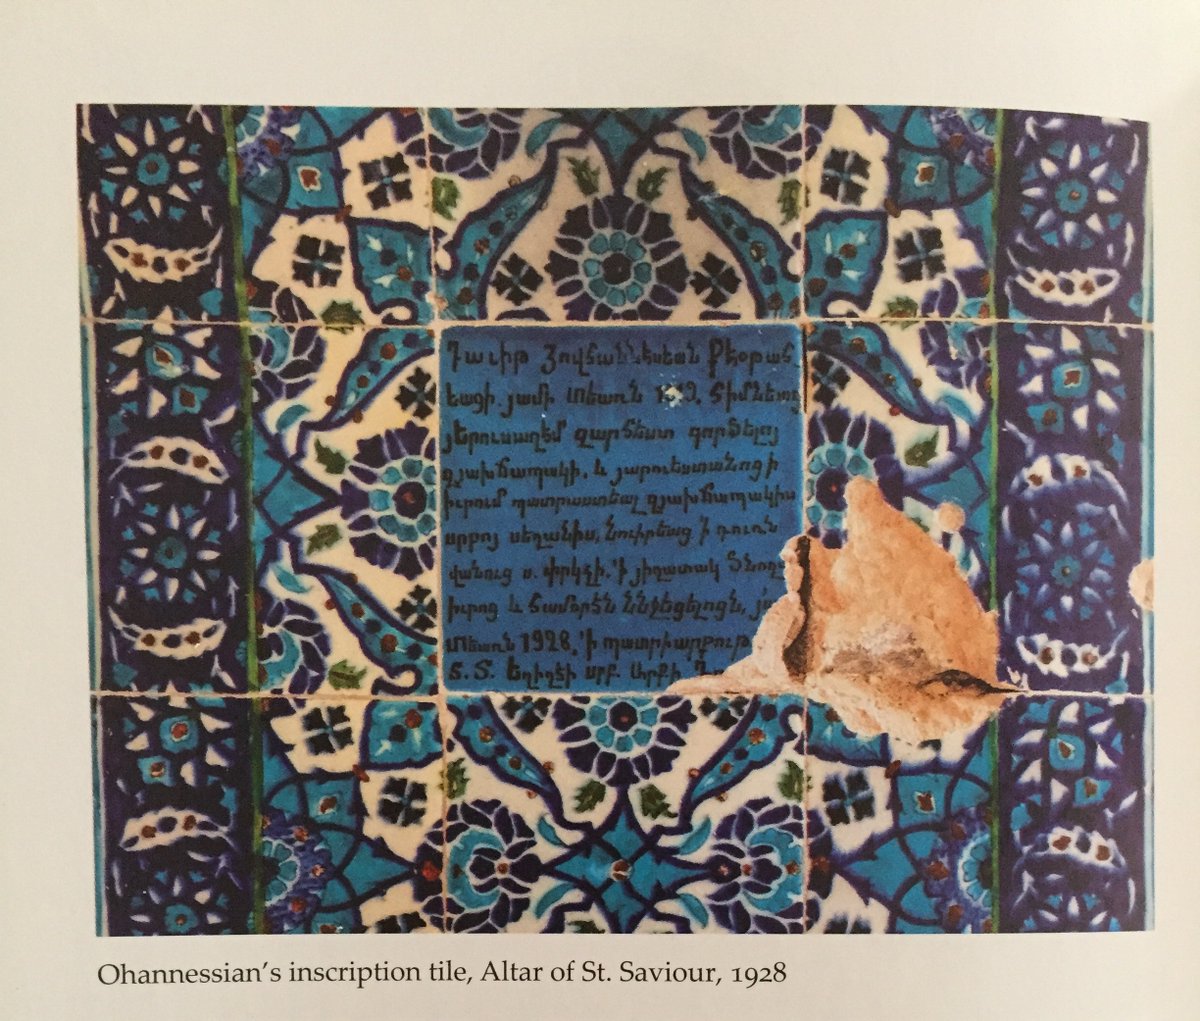 Դաւիթ Յովհաննէսեան Քէօթահ
եացի յամի Տեառն 19 3, հիմնեաց
յԵրուսաղէմ զարհեստ գործելոյ
զյախճապակի, և յարուեստանոցի
իւրում պատրաստեալ զյախճապակիս
սրբոյ սեղանիս, նուիրեաց ՚ի դուռն
վանուց ս. փրկչի. ՚ի յիշատակ ծնող
իւրոց և համօրէն ննջեցելոցն, յա
Տեառն 1928, ՚ի պատրիարքութ
Տ. Տ. Եղիշէի սրբ. Արք.ի Դ
Ohannessian's inscription tile, Altar of St. Saviour, 1928